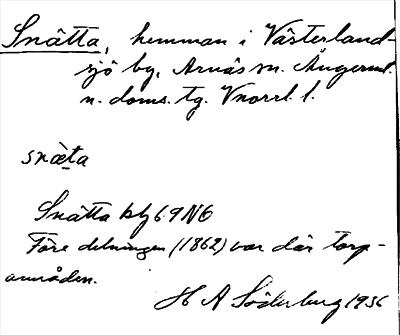 Snätta, hemman i Västerland-
sjö by, Arnäs sn. Ångerml.
n. doms. tg. Vnorrl. l.
snæta
Snätta kbl 6.9 NG
Före delningen (1862) var där torp-
områden.
H A Söderberg 1936